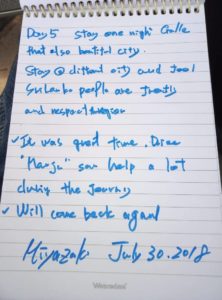 Day 5 stay one night Galle
that also beatiful city.
Stay @ diffrant city and feel
Sri Lanka people are friendly
and respect religion
✓ It was good time. Drive
"Manju" san help a lot
during the Journey
✓ Will come back again
Miyazaki July 30. 2018